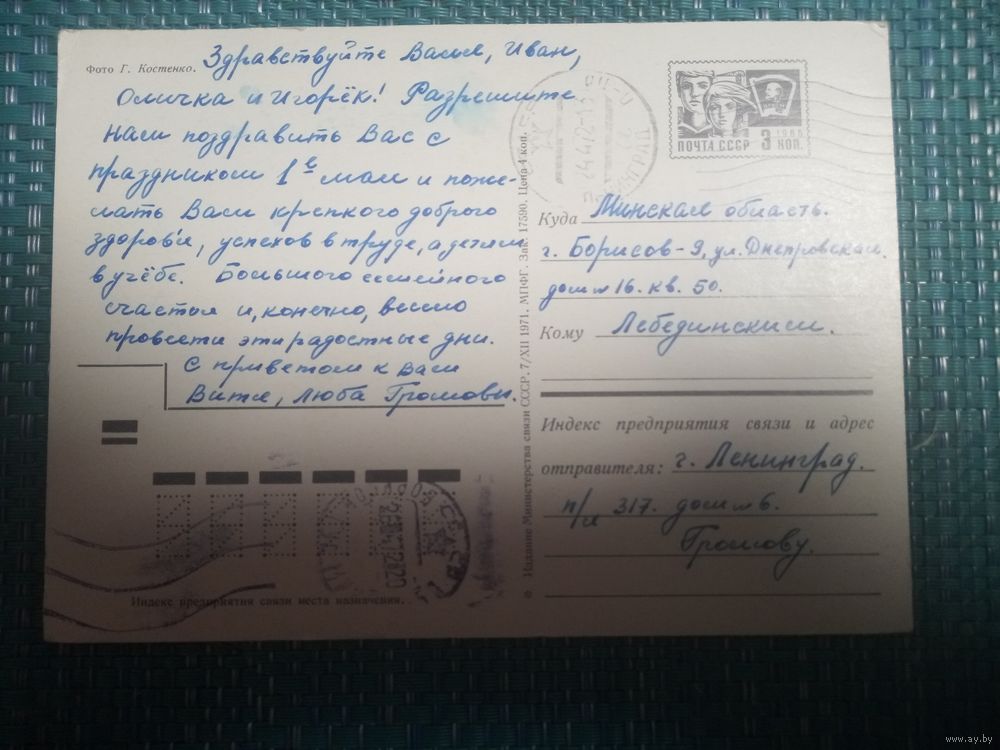 Фото Г. Костенко.
Здравствуйте Валя, Иван,
Оличка и Игорёк! Разрешите
нам поздравить Вас с
праздником 1е мая и поже-
лать Вам крепкого доброго
здоровья, успехов в труде, а детям
в учёбе. Большого семейного
счастья и, конечно, весело
провести эти радостные дни.
С приветом к Вам
Витя, Люба Громовы.
Индекс предприятия связи места назначения.
Издание Министерства связи СССР. 7/XII 1971. МПФГ. Зак. 17590. Цена 4 коп.
1966
ПОЧТА СССР 3 КОП.
Куда Минская область.
г. Борисов-9, ул. Днепровская
дом № 16. кв. 50.
Кому Лебединским.
Индекс предприятия связи и адрес
отправителя: г. Ленинград.
п/я 317. дом № 6.
Громову.
www.ay.by